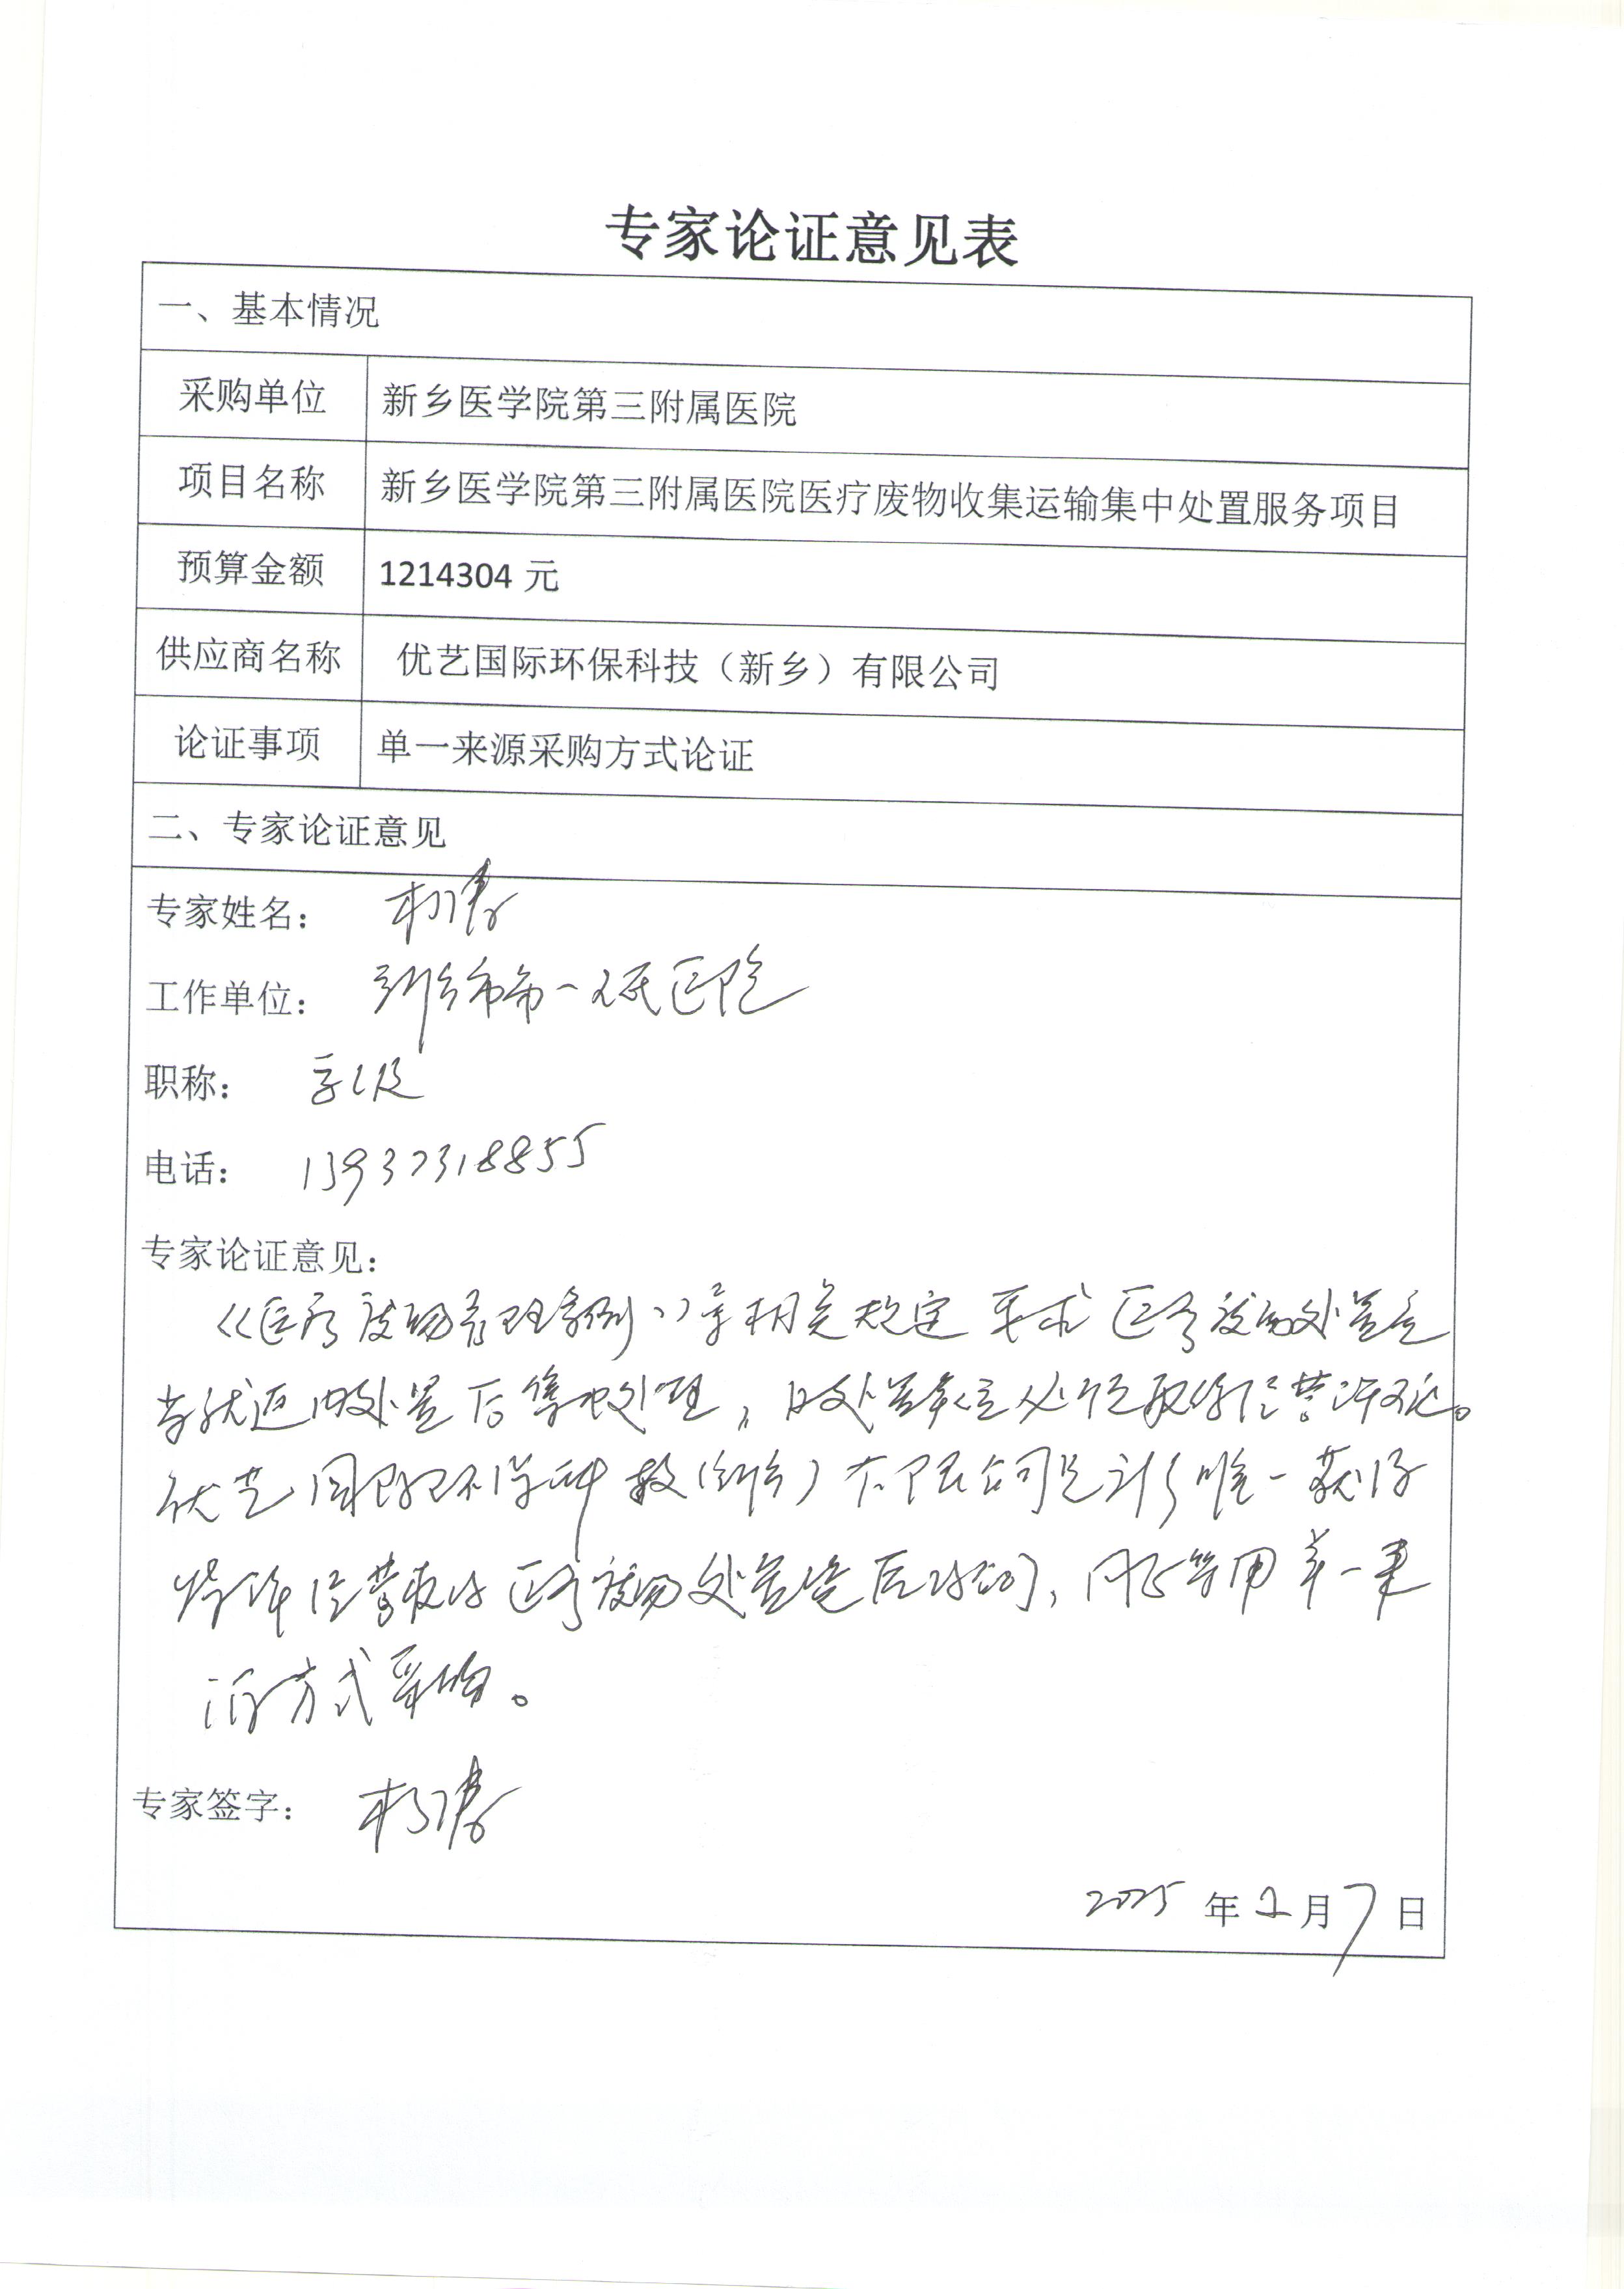 专家论证意见表
一、基本情况
采购单位 新乡医学院第三附属医院
项目名称 新乡医学院第三附属医院医疗废物收集运输集中处置服务项目
预算金额 1214304 元
供应商名称 优艺国际环保科技（新乡）有限公司
论证事项 单一来源采购方式论证
二、专家论证意见
专家姓名：
工作单位： 新乡市第一人民医院
职称： 高级
电话： 13937318855
专家论证意见：
《医疗废物管理条例》等相关规定要求医疗废物处置
就近 处置 处理，处置单位必须取得经营许可证。
优艺国际环保科技（新乡）有限公司是新乡唯一获得
特许经营 医疗废物处置 公司，同意采用单一来
源方式采购。
专家签字：
2025 年 2 月 7 日